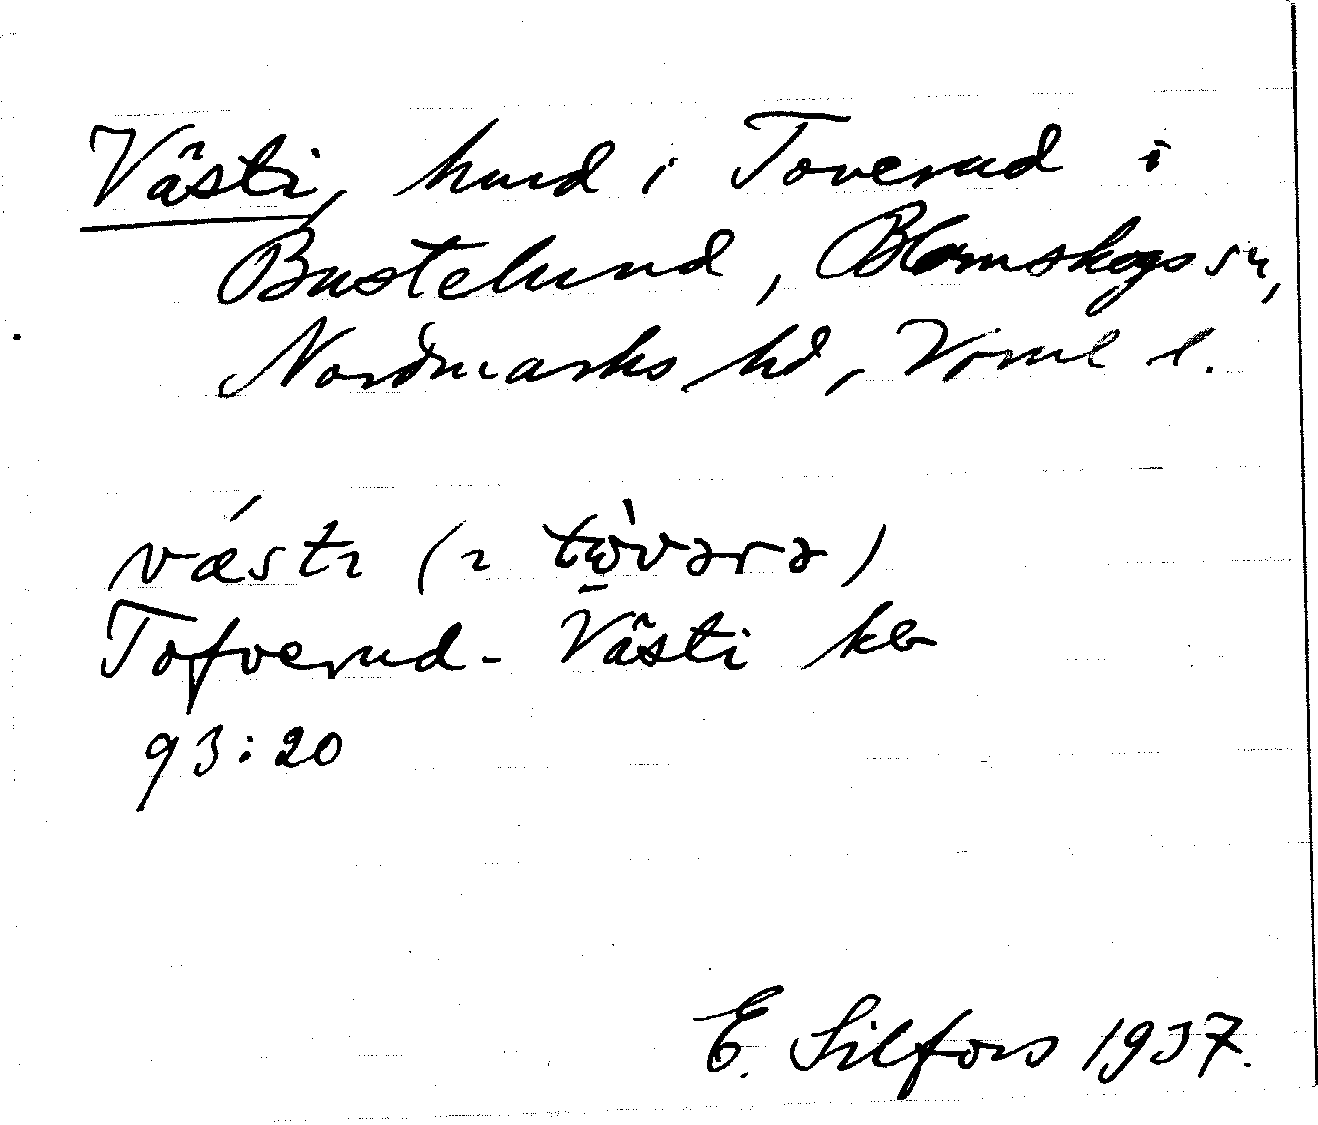 Västi, hmd i Toverud i
Bustelund, Blomskogs sn,
Nordmarks hd, Vrml l.
væ´stı (ı tὼvərə)
Tofverud-Västi kb
93:20
E. Silfors 1937.